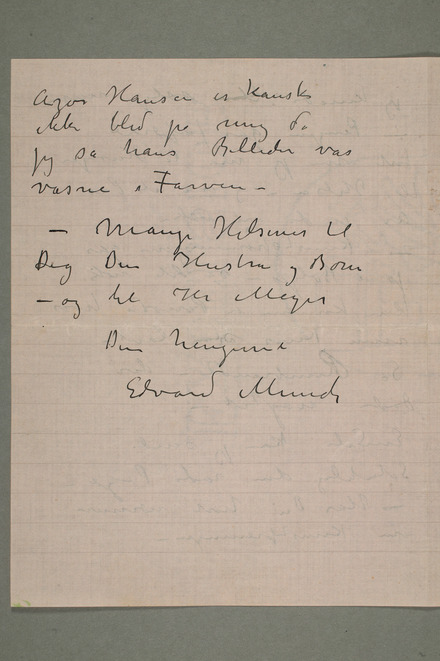 Hansen er kanske
ikke blid på mig da
jeg sa hans Billeder var
i Farven –
– Mange Hilsener til
Dig Din Hustru og Børn
– og til Hr Meyer
Din hengivne
Edvard Munch